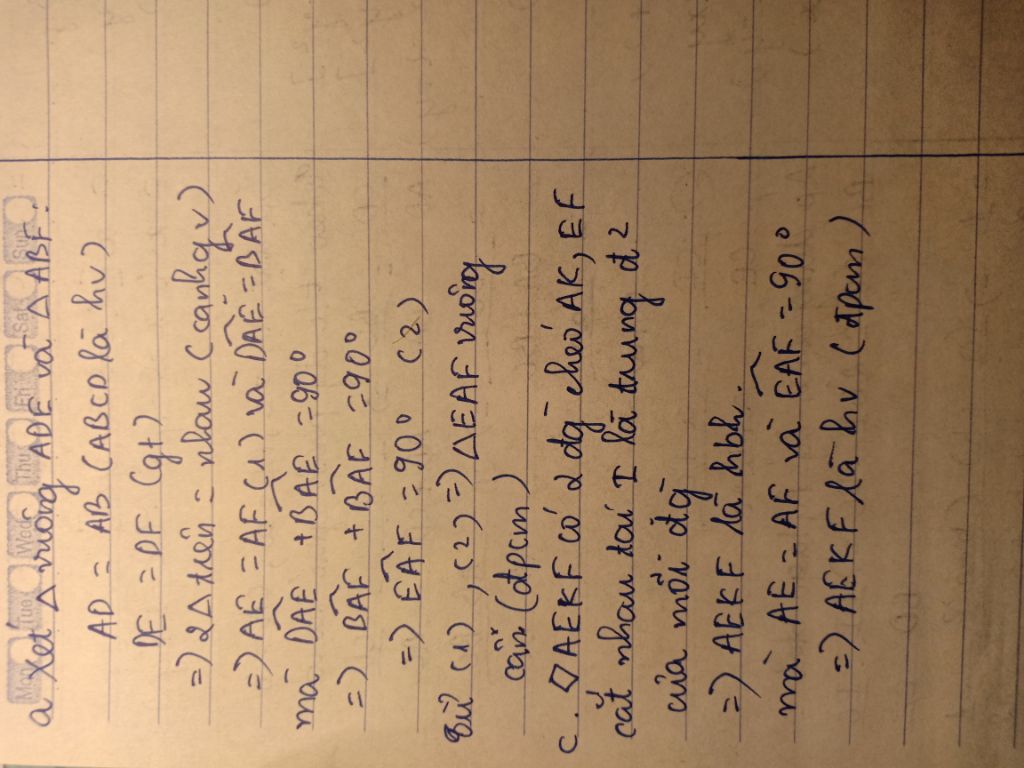 Mon Tue Wed Thu Fri Sat Sun
a Xét △ vuông ADE và △ ABF.
AD = AB (ABCD là hv)
DE = DF (gt)
=> 2 △ trên = nhau (cạnh gv)
=> AE = AF (1) và DAE = BAF
mà DAE + BAE = 90°
=> BAF + BAE = 90°
=> EAF = 90° (2)
Từ (1), (2) => △EAF vuông
cân (đpcm)
c. ◇ AEKF có 2 đg chéo AK, EF
cắt nhau tại I là trung đ 2
của mỗi đg
=> AEKF là hbh.
mà AE = AF và EAF = 90°
=> AEKF là hv (đpcm)